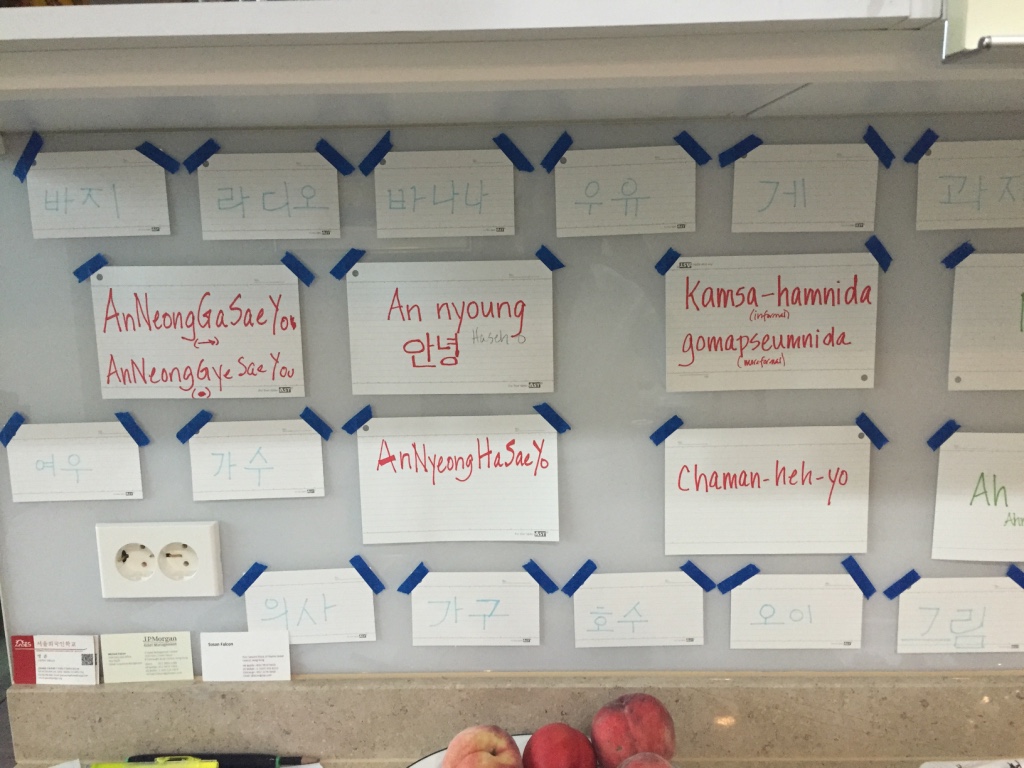 바지
라디오
바나나
우유
게
과자
AnNeongGaSaeYou
AnNeongGyeSaeYou
An nyoung
안녕
Haseh-o
Kamsa-hamnida
(informal)
gomapseumnida
(more formal)
여우
가수
AnNyeongHaSaeYo
Chaman-heh-yo
Ah
의사
가구
호수
오이
그림
J.P.Morgan